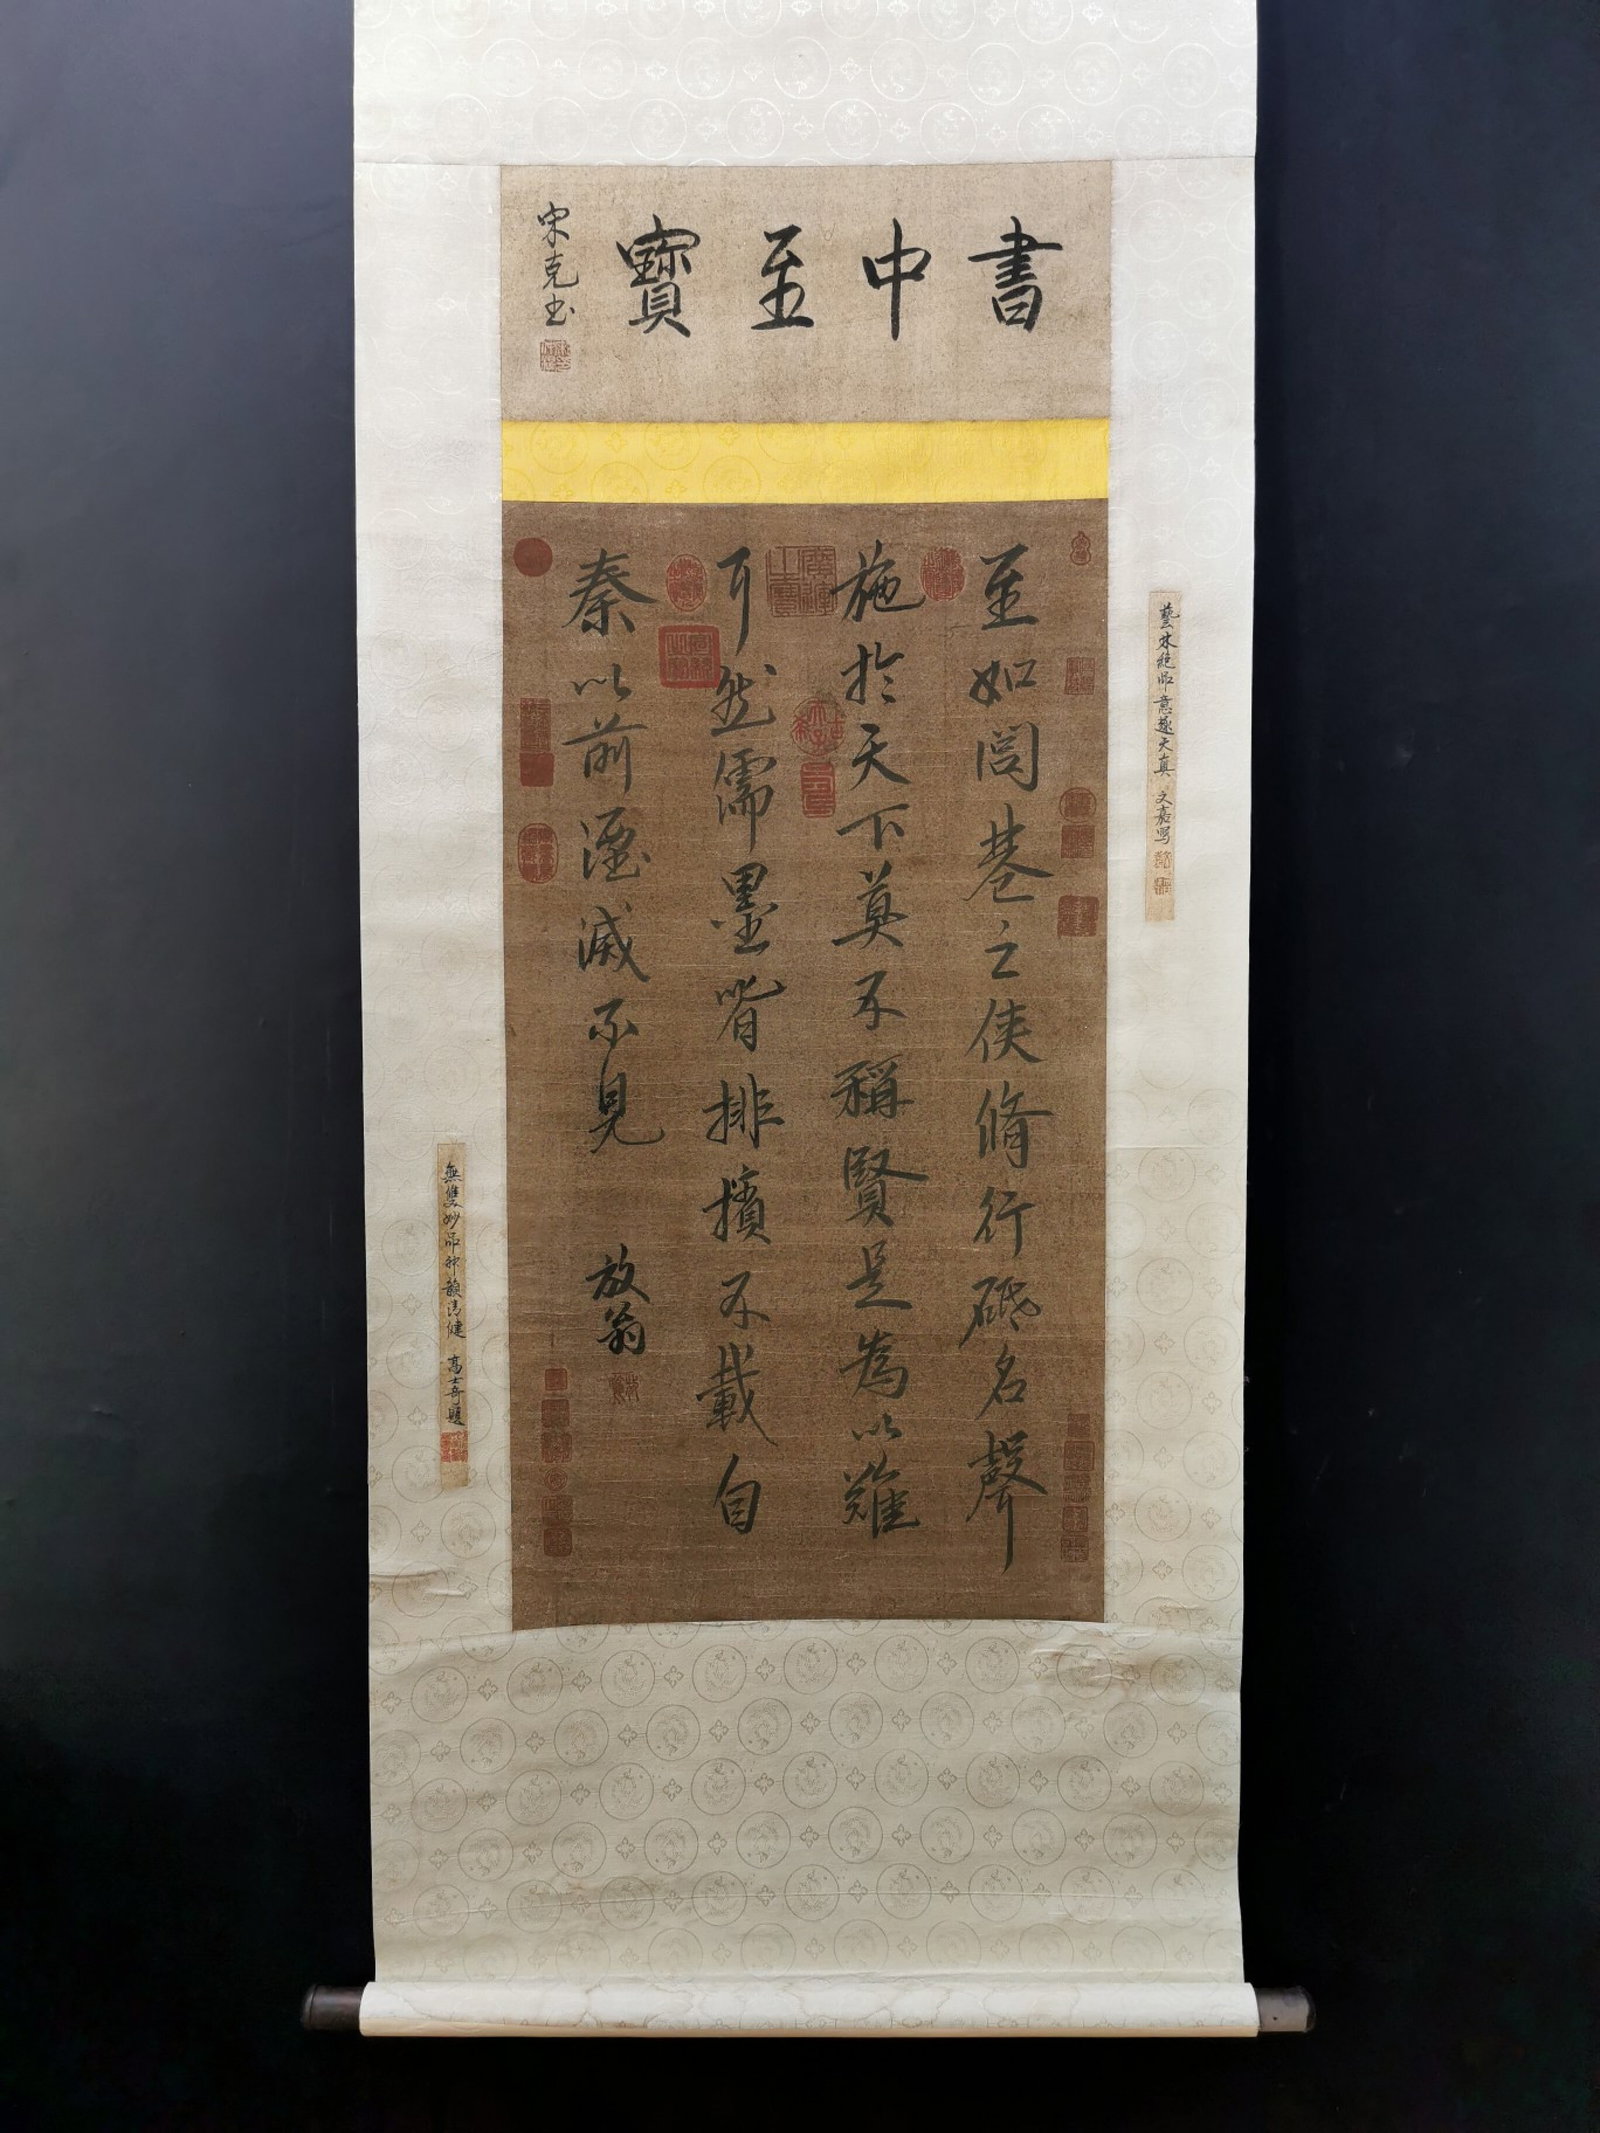 書中至寶
宋克书
至如閭巷之俠脩行砥名聲
施於天下莫不稱賢是為以難
耳然儒墨皆排擯不載自
秦以前湮滅不見
放翁
藝林絕品意趣天真 文嘉写
無雙妙品神韻清健 高士奇題